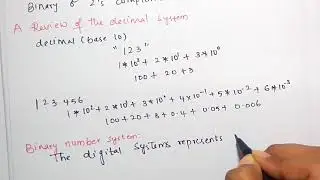 Binary of 2's complement
A Review of the decimal system
decimal (base 10)
"123"
1*10² + 2*10¹ + 3*10⁰
100 + 20 + 3
123.456
1*10² + 2*10¹ + 3*10⁰ + 4×10⁻¹ + 5*10⁻² + 6*10⁻³
100 + 20 + 3 + 0.4 + 0.05 + 0.006
Binary number system:
The digital systems represents